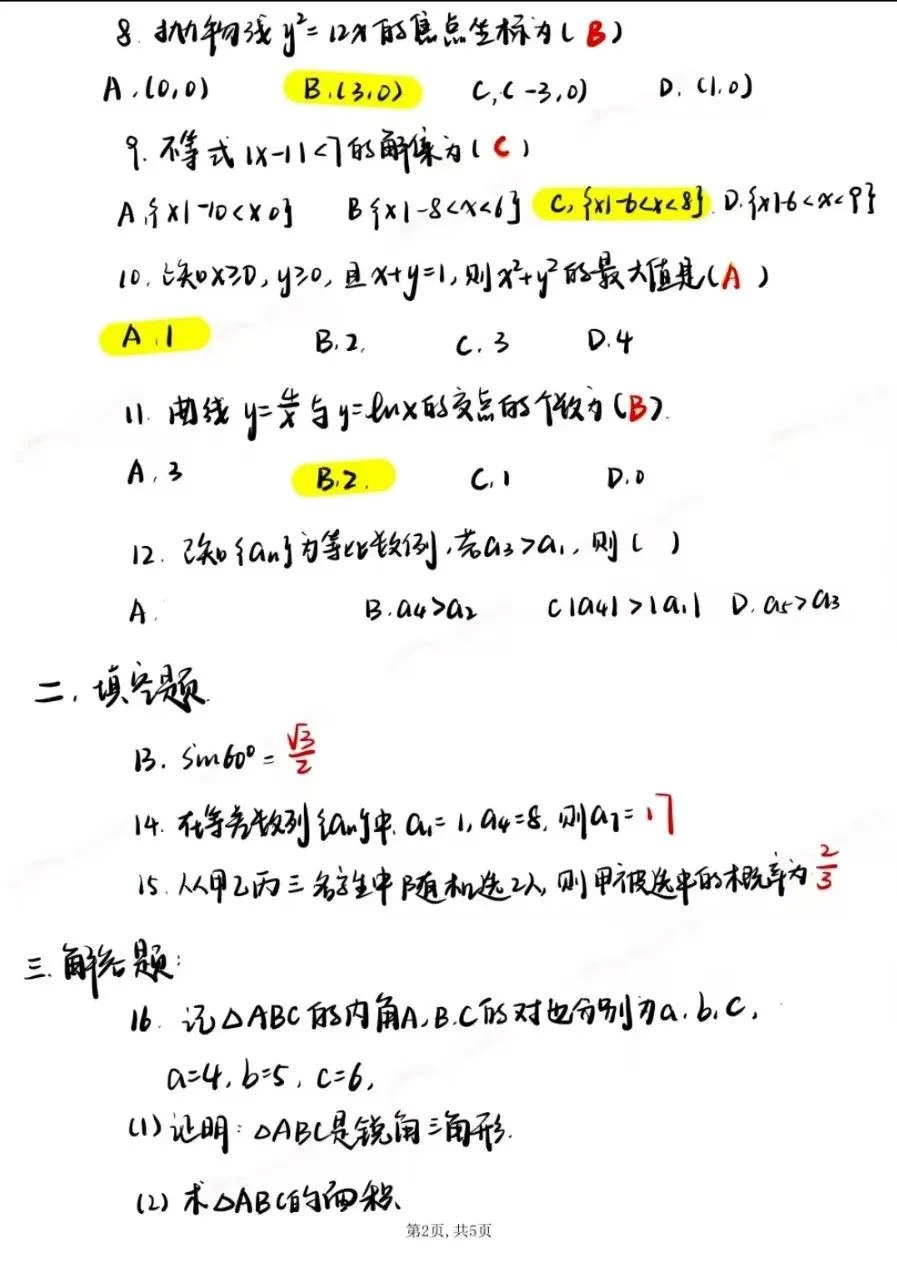 8. 抛物线 y²=12x的焦点坐标为(B)
A.(0,0) B.(3,0) C,(-3,0) D.(1.0)
9. 不等式 |x-1|<7的解集为(C)
A.{x|-10<x0} B{x|-8<x<6} C,{x|-6<x<8}. D.{x|-6<x<9}
10. 已知x≥0, y≥0, 且x+y=1, 则x²+y²的最大值是(A)
A.1 B.2. C.3 D.4
11. 曲线 y=4/x与y=lnx的交点的个数为(B).
A.3 B.2. C.1 D.0
12. 已知{an}为等比数列,若a3>a1, 则( )
A. B.a4>a2 C|a4|>|a1| D.a5>a3
二.填空题
13. sin60°=√3/2
14. 在等差数列{an}中. a1=1, a4=8, 则a7=17
15. 从甲乙丙三名学生中随机选2人, 则甲被选中的概率为2/3
三.解答题:
16. 记△ABC的内角A,B.C的对边分别为a.b.c,
a=4, b=5, c=6,
(1)证明:△ABC是锐角三角形.
(2)求△ABC的面积.
第2页,共5页